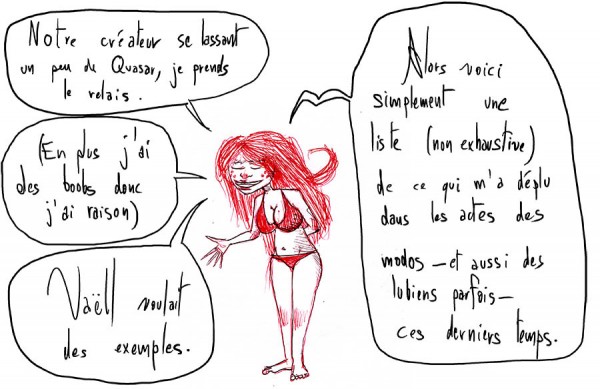 Notre créateur se lassant
un peu de Quasar, je prends
le relais.
(En plus j'ai
des boobs donc
j'ai raison)
Vaëll voulait
des exemples.
Alors voici
simplement une
liste (non exhaustive)
de ce qui m'a déplu
dans les actes des
modos – et aussi des
lubiens parfois –
ces derniers temps.